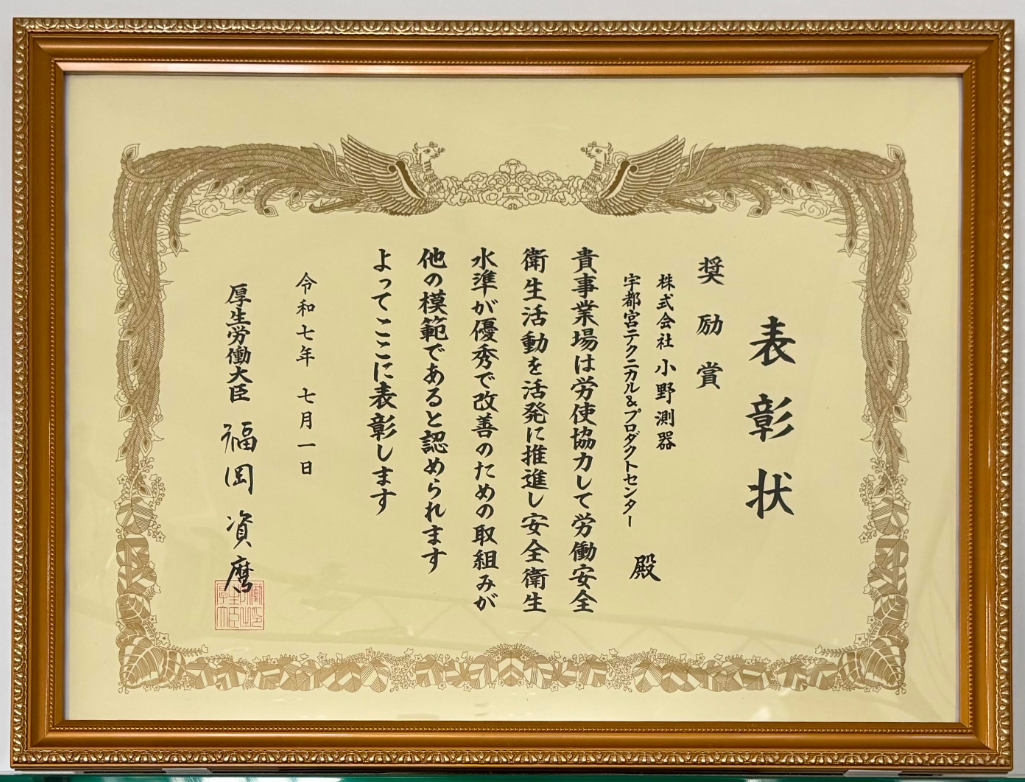 表彰状
奨励賞
株式会社 小野測器
宇都宮テクニカル&プロダクトセンター 殿
貴事業場は労使協力して労働安全
衛生活動を活発に推進し安全衛生
水準が優秀で改善のための取組みが
他の模範であると認められます
よってここに表彰します
令和七年 七月一日
厚生労働大臣 福岡 資麿